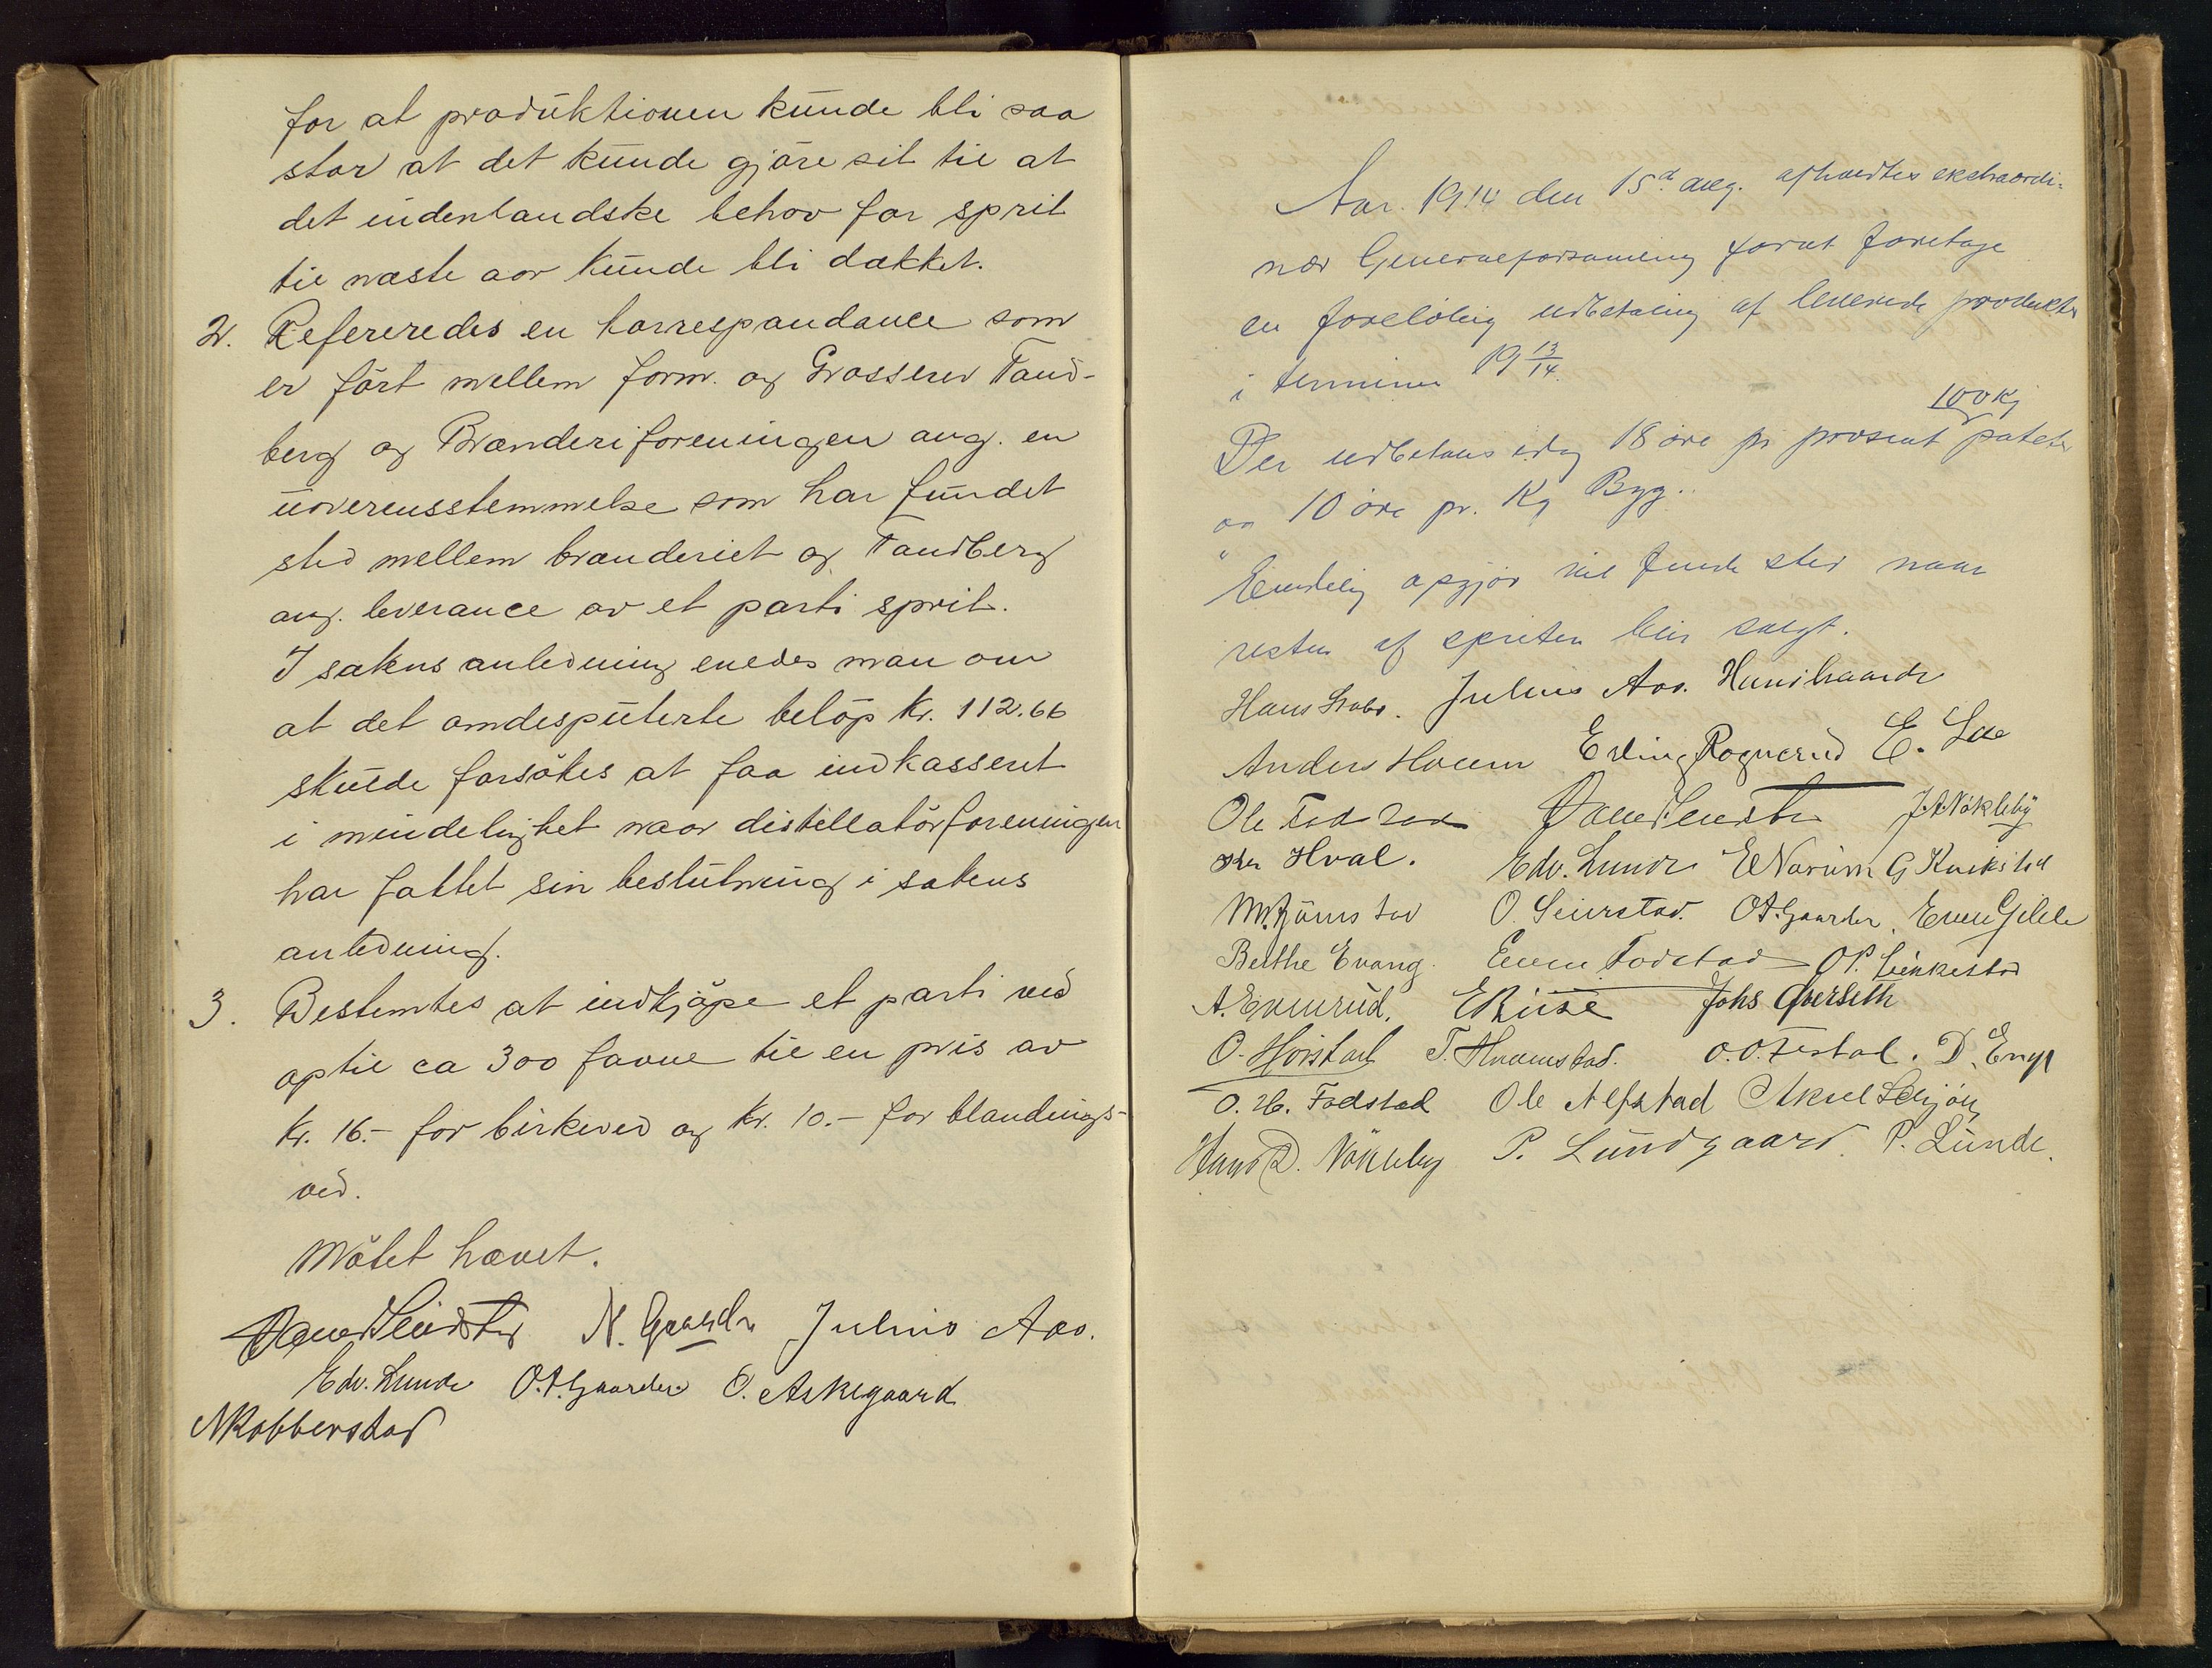 for at produktionen kunde bli saa
stor at det kunde gjøre sit til at
det indenlandske behov for sprit
til næste aar kunde bli dækket.
2. Refereredes en korrespondance som
er ført mellem form. og Grosserer Tand-
berg og Brænderiforeningen ang. en
uoverensstemmelse som har fundet
sted mellem brænderiet og Tandberg
ang. leverance av et parti sprit.
I sakens anledning enedes man om
at det omdesputerte beløp kr. 112.66
skulde forsøkes at faa indkasseret
i mindelighet naar distellatørforeningen
har fattet sin beslutning i sakens
anledning.
3. Bestemtes at indkjøpe et parti ved
optil ca 300 favne til en pris av
kr. 16.- for birkeved og kr. 10.- for blandings-
ved.
Møtet hævet.
N. Gaarder Julius Aas.
Edv. Lunde O.A. Gaarder O. Askegaard
N Kobberstad
Aar 1914 den 15d aug. afholdtes ekstraordi-
nær Generalforsamling forat foretage
en foreløbig udbetaling af leverede produkter
i terminen 19 13/14.
100 kg
Der udbetales idag 18 øre pr prosent potet
og 10 øre pr. Kg Byg.
Endelig opgjør vil finde sted naar
resten af spriten blir solgt.
Hans Julius Aas.
Anders Erling Rognerud E.
Ole J.A. Nøkleby
Hval. Edv. Lunde E Narum G
O. Seierstad. O A. Gaarder. Even
Berthe Evang. Even Fodstad O P.
A. Evenrud. E Riise Johs Qverseth
O. T. O. O. D. Enge
O. H. Fodstad Ole Alfstad Aksel
Hans D. Nøkleby P. Lundgaard. P. Lunde.